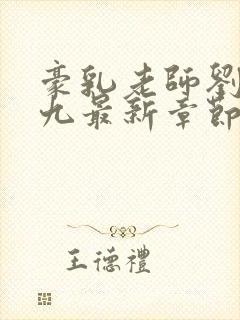 豪乳老師劉
九最新章節
王德禮